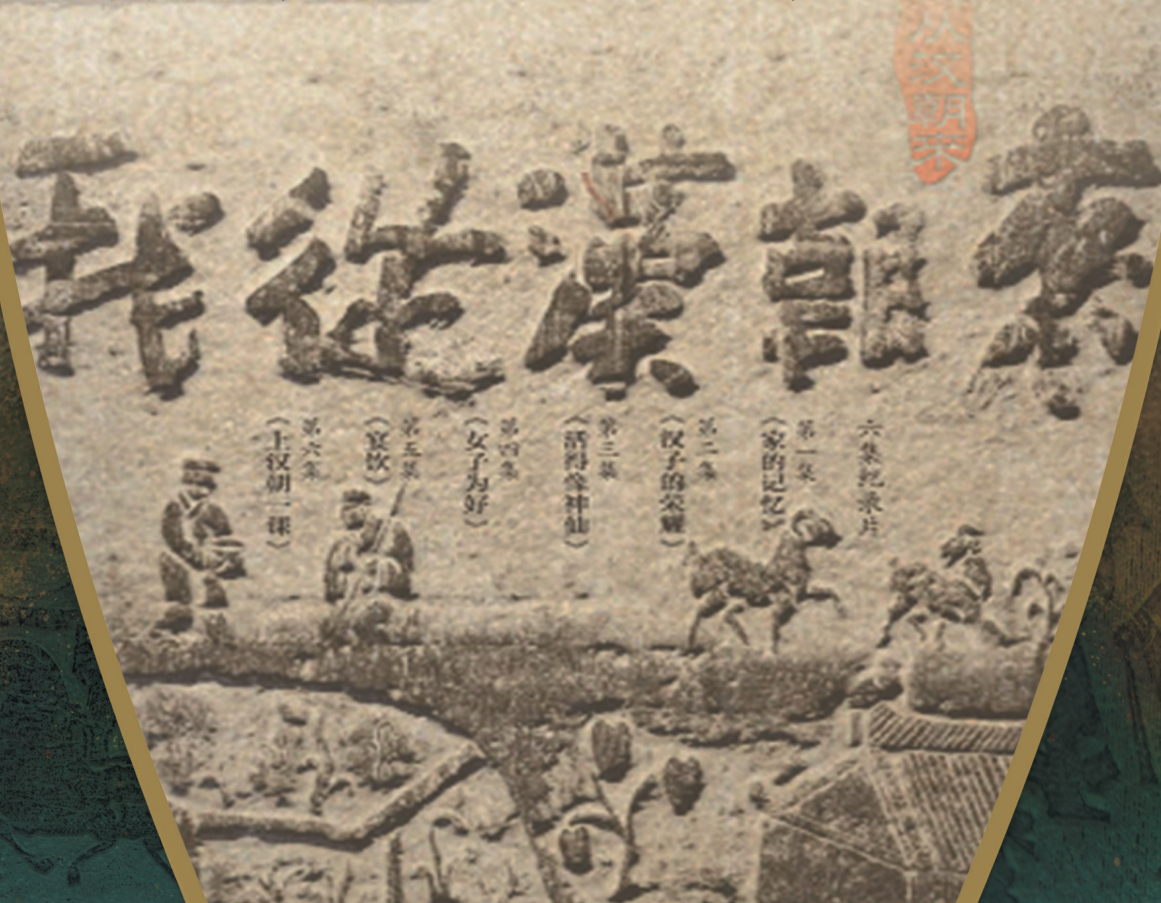 我從漢朝來
从汉朝来
六集纪录片
第一集
《家的记忆》
第二集
《汉子的荣耀》
第三集
《活得像神仙》
第四集
《女子为好》
第五集
《宴饮》
第六集
《上汉朝一课》